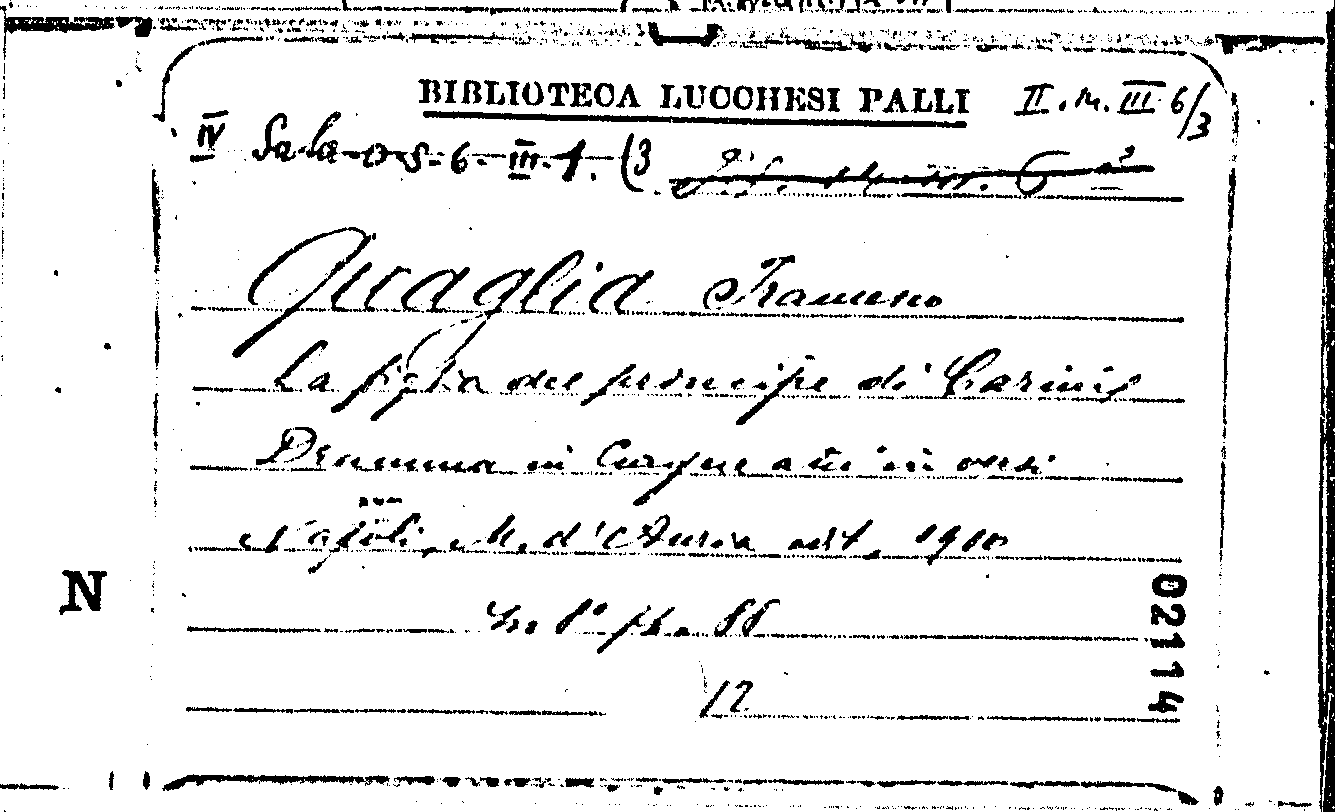 BIBLIOTECA LUCCHESI PALLI II.M.III 6/3
IV Sala-05-6-III-1.(3
Quaglia Francesco
La figlia del principe di Carini
Dramma in Cinque atti in versi
Napoli, M. d'Auria edit, 1900
In. 8° pp. 88
N
12
02114